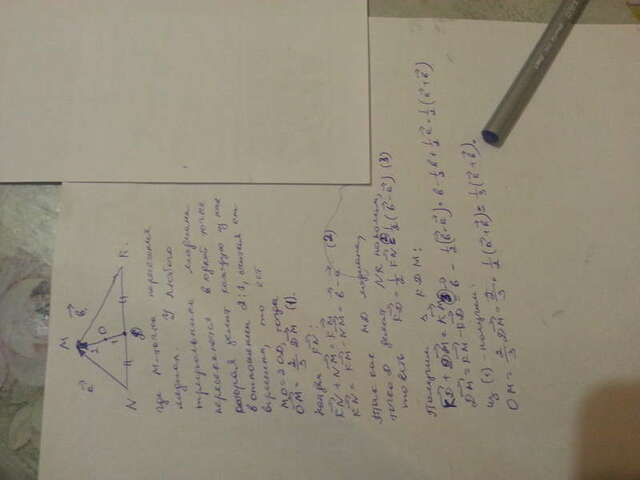 M
a⃗
b⃗
2
O
1
N
D
K.
где M-точка пересечения
медиан. У любого
треугольника медианы
пересекаются в одной точке
которая делит каждую из них
в отношении 2:1, считая от
вершины, то есть
MO=2OD, тогда
OM⃗ = 2/3 DM⃗ (1).
Найдём KD⃗:
KN⃗ + NM⃗ = KM⃗
KN⃗ = KM⃗ - NM⃗ = b⃗ - a⃗ (2)
Так как MD медиана,
точка D делит NK пополам,
то есть KD⃗ = 1/2 KN⃗ = 1/2 (b⃗-a⃗) (3)
Получим Δ KDM:
KD⃗ + DM⃗ = KM⃗ =>
DM⃗ = KM⃗ - KD⃗ = b⃗ - 1/2 (b⃗-a⃗) = b⃗ - 1/2 b⃗ + 1/2 a⃗ = 1/2 (a⃗+b⃗)
Из (1) - получаем:
OM⃗ = 2/3 DM⃗ = 2/3 · 1/2 (a⃗+b⃗) = 1/3 (a⃗+b⃗).